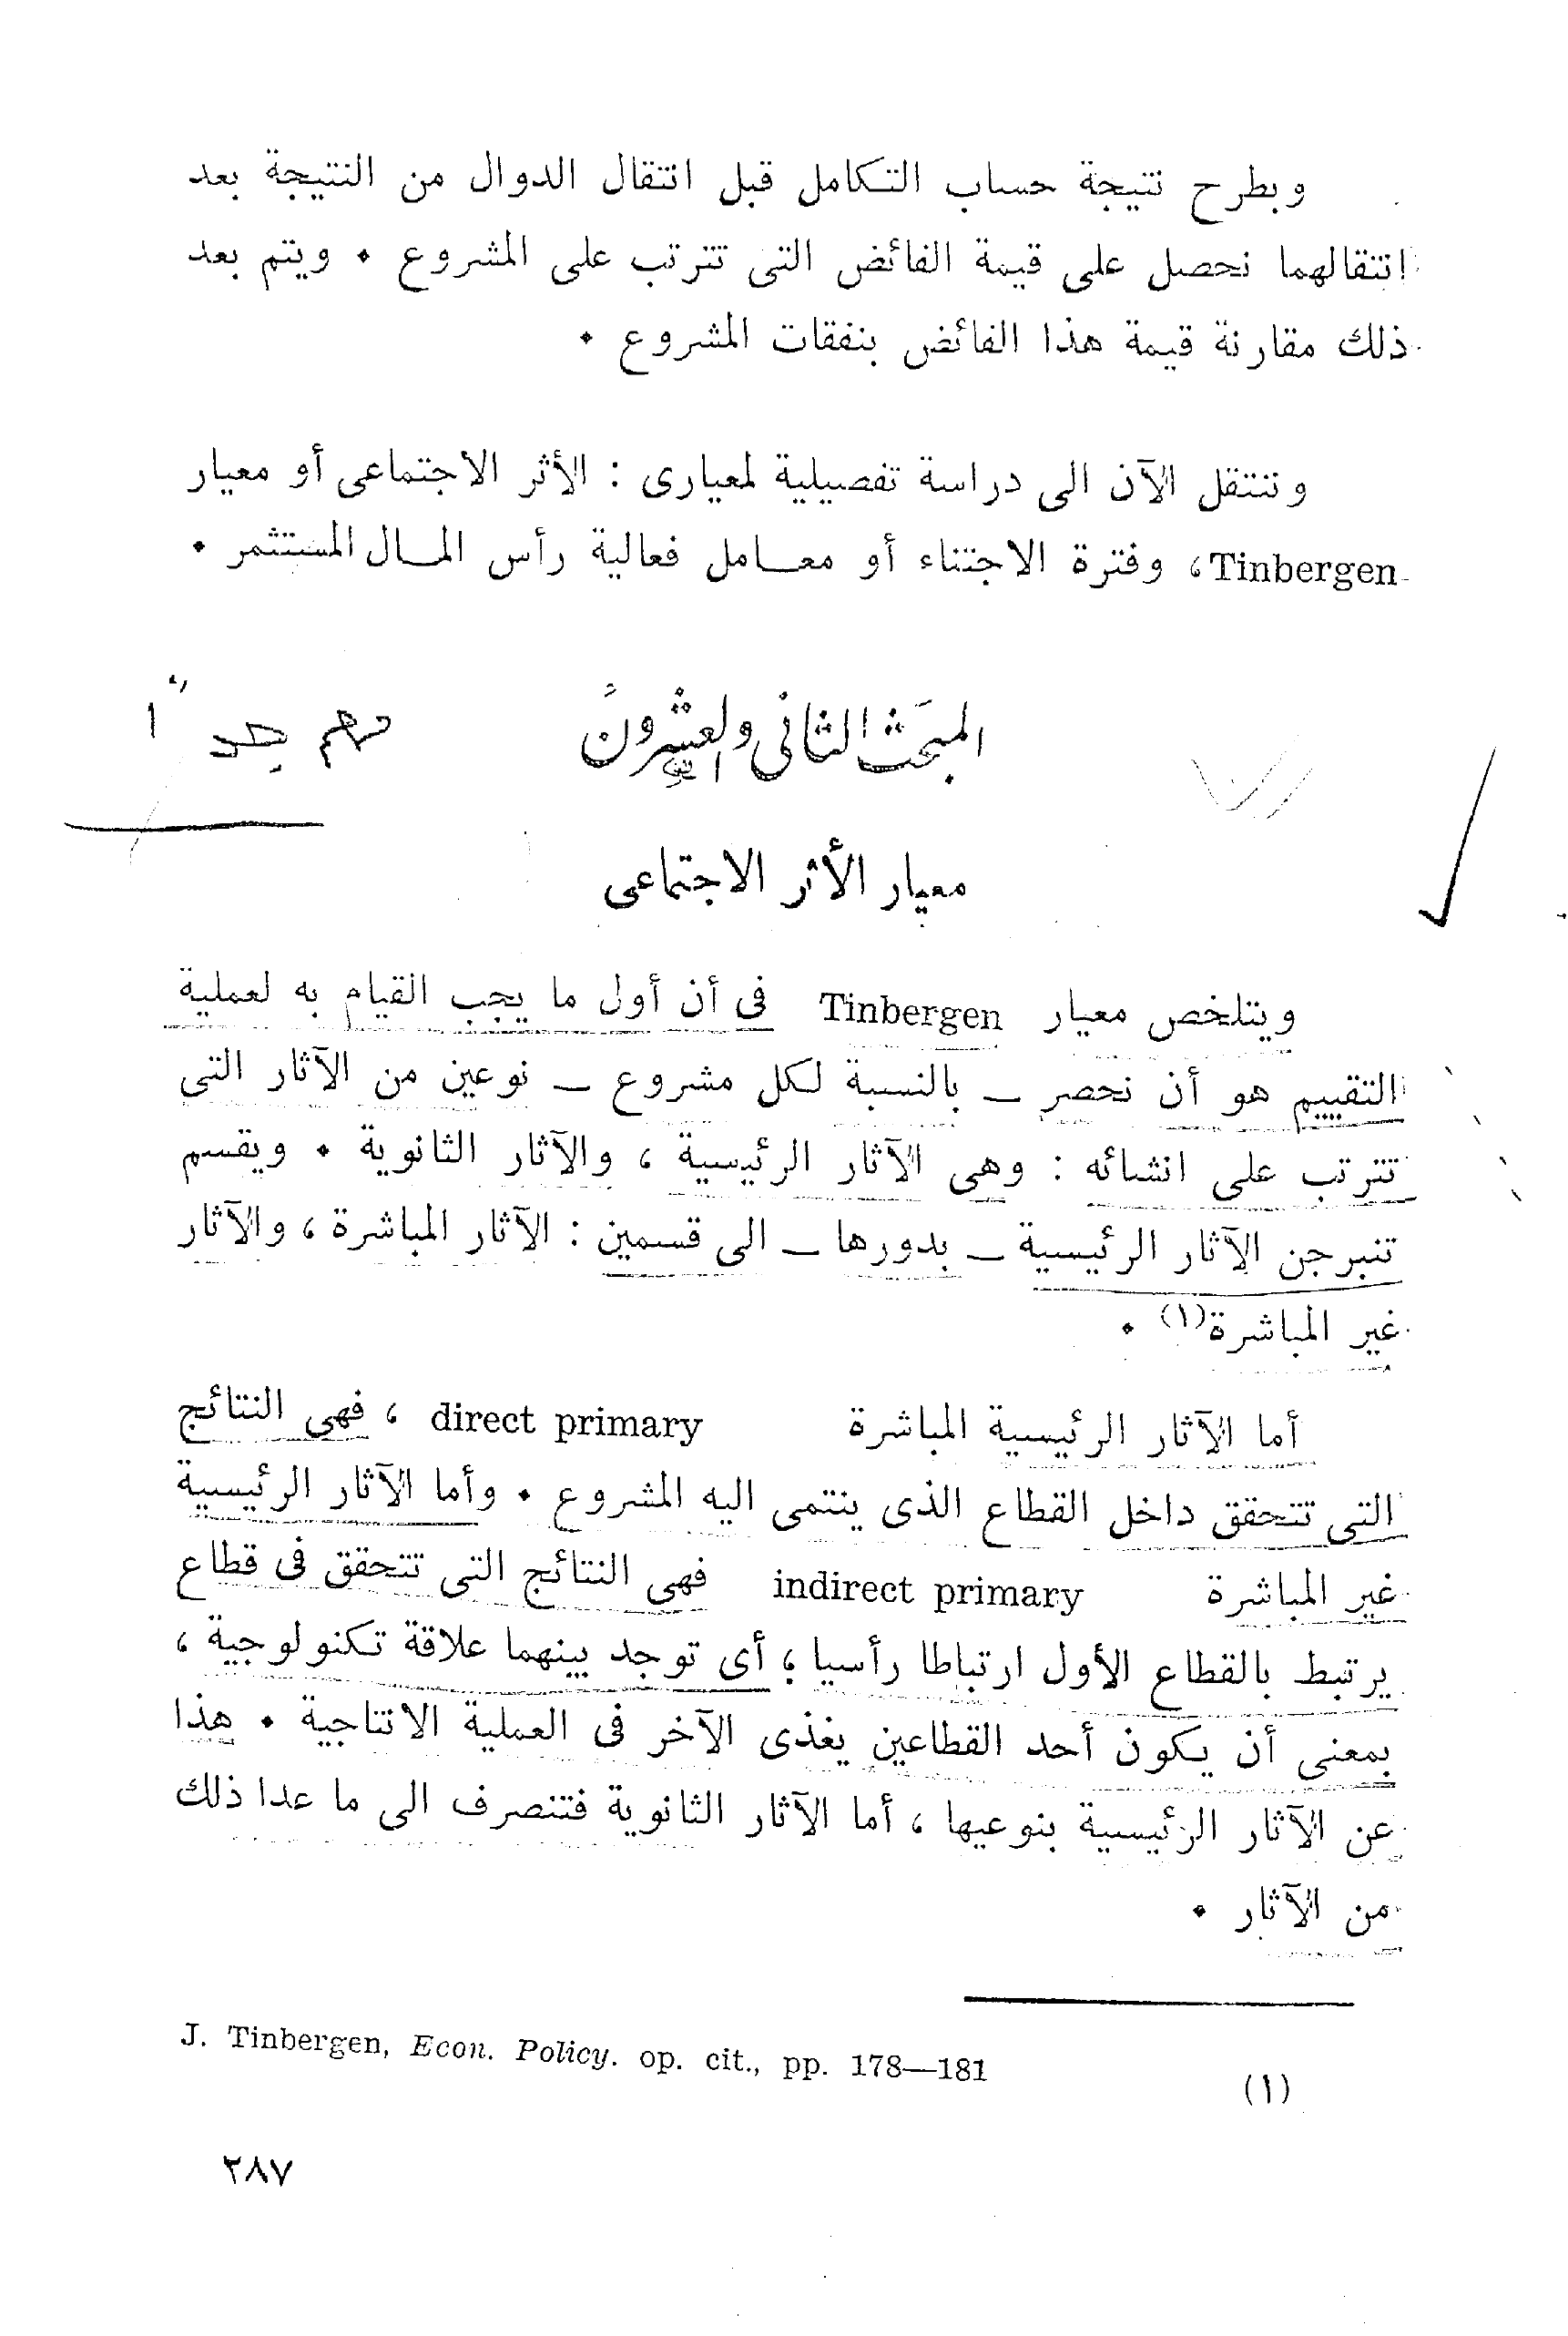 وبطرح نتيجة حساب التكامل قبل انتقال الدوال من النتيجة بعد
انتقالهما نحصل على قيمة الفائض التى تترتب على المشروع • ويتم بعد
ذلك مقارنة قيمة هذا الفائض بنفقات المشروع •
وننتقل الآن الى دراسة تفصيلية لمعيارى : الأثر الاجتماعى أو معيار
Tinbergen ، وفترة الاجتناء أو معامل فعالية رأس المال المستثمر •
المبحث الثانى والعشرون
مهم جداً
معيار الأثر الاجتماعى
ويتلخص معيار Tinbergen فى أن أول ما يجب القيام به لعملية
التقييم هو أن نحصر – بالنسبة لكل مشروع – نوعين من الآثار التى
تترتب على انشائه : وهى الآثار الرئيسية ، والآثار الثانوية • ويقسم
تنبرجن الآثار الرئيسية – بدورها – الى قسمين : الآثار المباشرة ، والآثار
غير المباشرة(١) •
أما الآثار الرئيسية المباشرة direct primary ، فهى النتائج
التى تتحقق داخل القطاع الذى ينتمى اليه المشروع • وأما الآثار الرئيسية
غير المباشرة indirect primary فهى النتائج التى تتحقق فى قطاع
يرتبط بالقطاع الأول ارتباطا رأسيا ؛ أى توجد بينهما علاقة تكنولوجية ،
بمعنى أن يكون أحد القطاعين يغذى الآخر فى العملية الانتاجية • هذا
عن الآثار الرئيسية بنوعيها ، أما الآثار الثانوية فتنصرف الى ما عدا ذلك
من الآثار •
J. Tinbergen, Econ. Policy. op. cit., pp. 178—181
(١)
٢٨٧